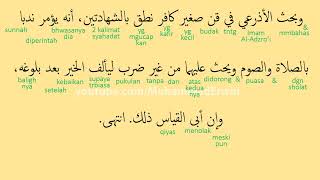 وبحث الأذرعي في قن صغير كافر نطق بالشهادتين، أنه يؤمر ندبا
sunnah diperintah bhwasanya dia 2 kalimat syahadat yg mgucap kan yg kafir yg kecil budak tntg Imam Al-Adzro'i & mmbahas
بالصلاة والصوم ويحث عليهما من غير ضرب ليألف الخير بعد بلوغه،
baligh nya setelah kebaikan supaya trbiasa pukulan tanpa dari atas kedua nya didorong & puasa & dgn sholat
وإن أبى القياس ذلك. انتهى.
qiyas menolak meski pun